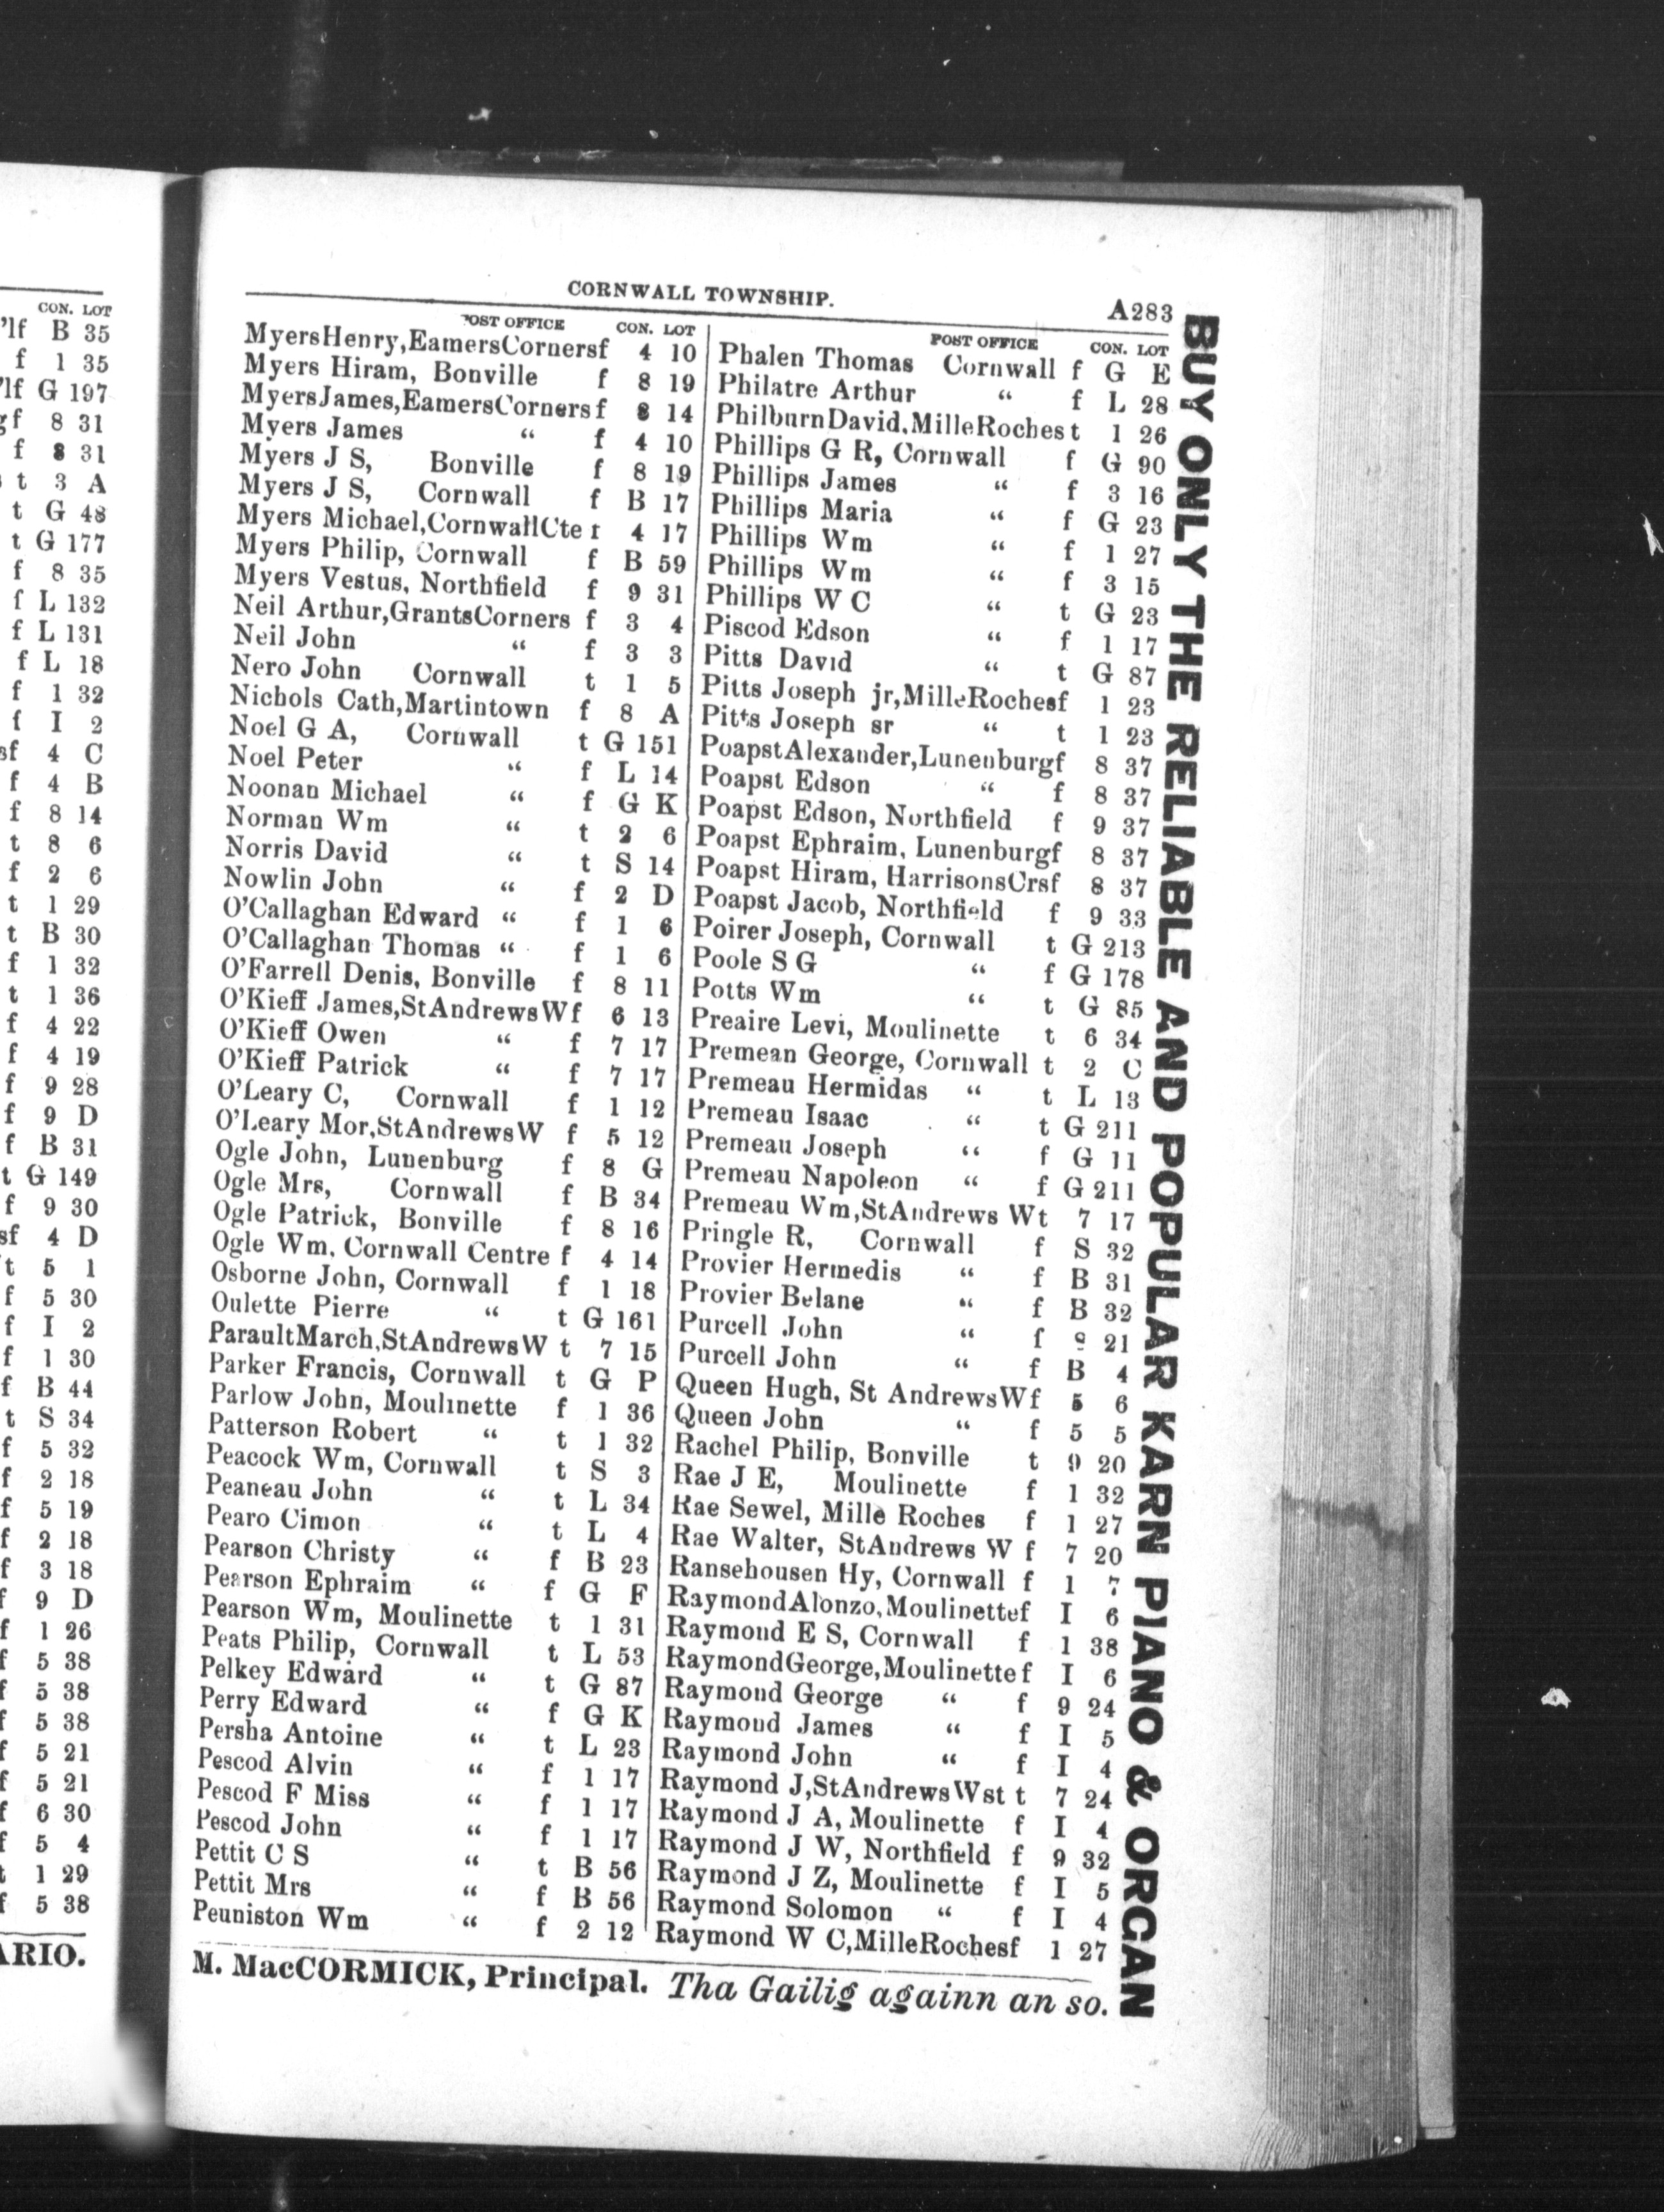 CON. LOT
'lf B 35
f 1 35
'lf G 197
gf 8 31
f 8 31
t 3 A
t G 48
t G 177
f 8 35
f L 132
f L 131
f L 18
f 1 32
f I 2
sf 4 C
f 4 B
f 8 14
t 8 6
f 2 6
t 1 29
t B 30
f 1 32
t 1 36
f 4 22
f 4 19
f 9 28
f 9 D
f B 31
t G 149
f 9 30
sf 4 D
t 5 1
f 5 30
f I 2
f 1 30
f B 44
t S 34
f 5 32
f 2 18
f 5 19
f 2 18
f 3 18
f 9 D
f 1 26
f 5 38
f 5 38
f 5 38
f 5 21
f 5 21
f 6 30
f 5 4
t 1 29
f 5 38
ARIO.
CORNWALL TOWNSHIP. A283
POST OFFICE CON. LOT
MyersHenry,EamersCornersf 4 10
Myers Hiram, Bonville f 8 19
MyersJames,EamersCorners f 8 14
Myers James “ f 4 10
Myers J S, Bonville f 8 19
Myers J S, Cornwall f B 17
Myers Michael,CornwallCte r 4 17
Myers Philip, Cornwall f B 59
Myers Vestus, Northfield f 9 31
Neil Arthur,GrantsCorners f 3 4
Neil John “ f 3 3
Nero John Cornwall t 1 5
Nichols Cath,Martintown f 8 A
Noel G A, Cornwall t G 151
Noel Peter “ f L 14
Noonan Michael “ f G K
Norman Wm “ t 2 6
Norris David “ t S 14
Nowlin John “ f 2 D
O'Callaghan Edward “ f 1 6
O'Callaghan Thomas “ f 1 6
O'Farrell Denis, Bonville f 8 11
O'Kieff James,StAndrewsWf 6 13
O'Kieff Owen “ f 7 17
O'Kieff Patrick “ f 7 17
O'Leary C, Cornwall f 1 12
O'Leary Mor,StAndrewsW f 5 12
Ogle John, Lunenburg f 8 G
Ogle Mrs, Cornwall f B 34
Ogle Patrick, Bonville f 8 16
Ogle Wm, Cornwall Centre f 4 14
Osborne John, Cornwall f 1 18
Oulette Pierre “ t G 161
ParaultMarch,StAndrewsW t 7 15
Parker Francis, Cornwall t G P
Parlow John, Moulinette f 1 36
Patterson Robert “ t 1 32
Peacock Wm, Cornwall t S 3
Peaneau John “ t L 34
Pearo Cimon “ t L 4
Pearson Christy “ f B 23
Pearson Ephraim “ f G F
Pearson Wm, Moulinette t 1 31
Peats Philip, Cornwall t L 53
Pelkey Edward “ t G 87
Perry Edward “ f G K
Persha Antoine “ t L 23
Pescod Alvin “ f 1 17
Pescod F Miss “ f 1 17
Pescod John “ f 1 17
Pettit C S “ t B 56
Pettit Mrs “ f B 56
Peuniston Wm “ f 2 12
POST OFFICE CON. LOT
Phalen Thomas Cornwall f G E
Philatre Arthur “ f L 28
PhilburnDavid,MilleRoches t 1 26
Phillips G R, Cornwall f G 90
Phillips James “ f 3 16
Phillips Maria “ f G 23
Phillips Wm “ f 1 27
Phillips Wm “ f 3 15
Phillips W C “ t G 23
Piscod Edson “ f 1 17
Pitts David “ t G 87
Pitts Joseph jr,MilleRochesf 1 23
Pitts Joseph sr “ t 1 23
PoapstAlexander,Lunenburgf 8 37
Poapst Edson “ f 8 37
Poapst Edson, Northfield f 9 37
Poapst Ephraim, Lunenburgf 8 37
Poapst Hiram, HarrisonsCrsf 8 37
Poapst Jacob, Northfield f 9 33
Poirer Joseph, Cornwall t G 213
Poole S G “ f G 178
Potts Wm “ t G 85
Preaire Levi, Moulinette t 6 34
Premean George, Cornwall t 2 C
Premeau Hermidas “ t L 13
Premeau Isaac “ t G 211
Premeau Joseph “ f G 11
Premeau Napoleon “ f G 211
Premeau Wm,StAndrews Wt 7 17
Pringle R, Cornwall f S 32
Provier Hermedis “ f B 31
Provier Belane “ f B 32
Purcell John “ f 21
Purcell John “ f B 4
Queen Hugh, St AndrewsWf 5 6
Queen John “ f 5 5
Rachel Philip, Bonville t 9 20
Rae J E, Moulinette f 1 32
Rae Sewel, Mille Roches f 1 27
Rae Walter, StAndrews W f 7 20
Ransehousen Hy, Cornwall f 1 7
RaymondAlonzo,Moulinettef I 6
Raymond E S, Cornwall f 1 38
RaymondGeorge,Moulinette f I 6
Raymond George “ f 9 24
Raymond James “ f I 5
Raymond John “ f I 4
Raymond J,StAndrewsWst t 7 24
Raymond J A, Moulinette f I 4
Raymond J W, Northfield f 9 32
Raymond J Z, Moulinette f I 5
Raymond Solomon “ f I 4
Raymond W C,MilleRochesf 1 27
M. MacCORMICK, Principal. Tha Gailig againn an so.
BUY ONLY THE RELIABLE AND POPULAR KARN PIANO & ORGAN